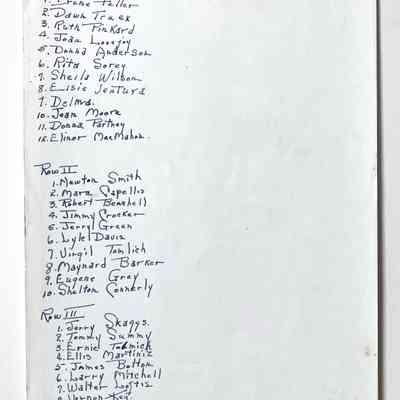 1. Irene Feller
2. Dawn Truex
3. Ruth Pinkard
4. Joan Lovejoy
5. Donna Anderson
6. Rita Sorey
7. Sheila Wilson
8. Elsie Ventura
9. Delma.
10. Jean Moore
11. Donna Partney
12. Elinor MacMahon.
Row II
1. Newton Smith
2. Mara Capellis
3. Robert Benshell
4. Jimmy Crocker
5. Jerry Green
6. Lyle Davis
7. Virgil Tomlich
8. Maynard Barker
9. Eugene Gray
10. Shelton Connerly
Row III
1. Jerry Skaggs.
2. Tommy Summy
3. Ernie
4. Ellis Martiniz
5. James Bolton
6. Larry Mitchell
7. Walter Loftis
8. Vernon Key.